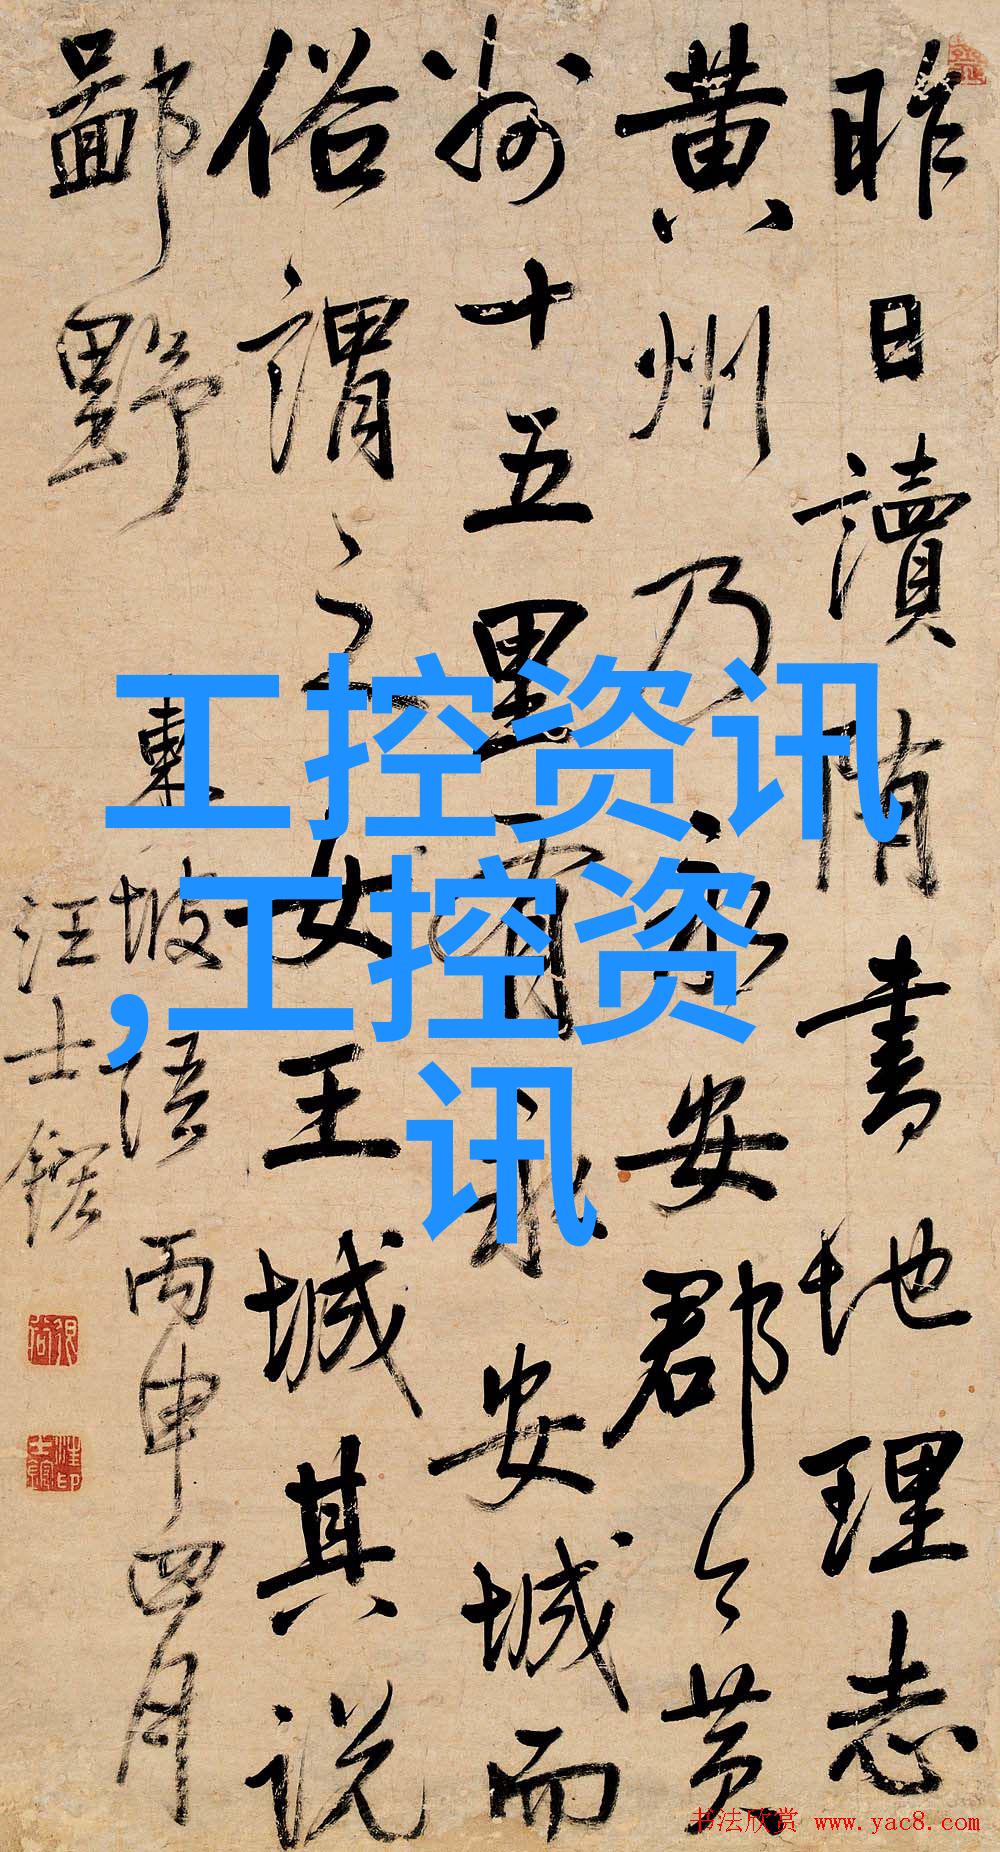 昨日讀隋書地理志
黄州乃永安郡今黄
州十五里有永安城而
俗謂之女王城其説
鄙野
東坡語 丙申四月
汪士鋐
工控资讯
,工控资
讯
书法欣赏 www.yac8.com